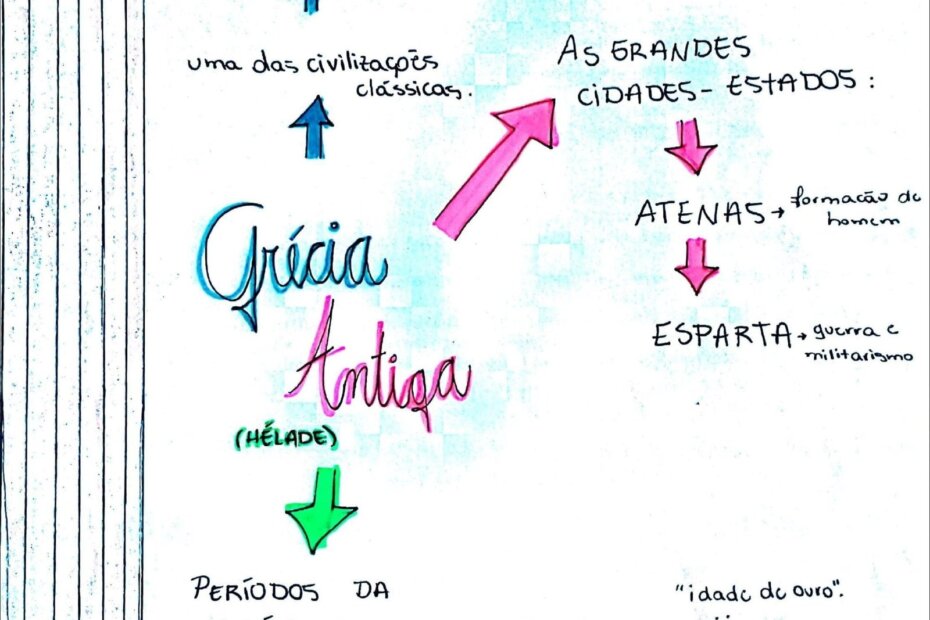 uma das civilizações
clássicas.
AS GRANDES
CIDADES-ESTADOS:
Grécia
Antiga
(HÉLADE)
ATENAS → formação do
homem
ESPARTA → guerra e
militarismo
PERÍODOS DA
"idade de ouro".